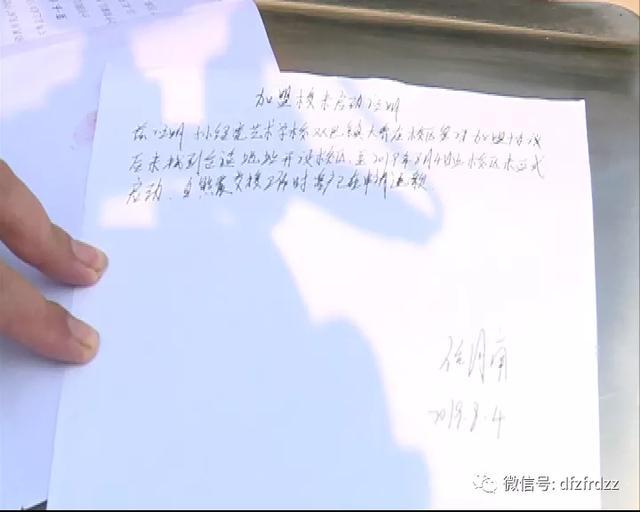 加盟校未启动证明
兹证明 小红花艺术学校双巴镇大寺庄校区签订加盟协议
后未找到合适地址开设校区,至2019年8月4日此校区未正式
启动,自熊震交接工作时客户已在申请退款
2019.8.4
微信号: dfzfrdzz